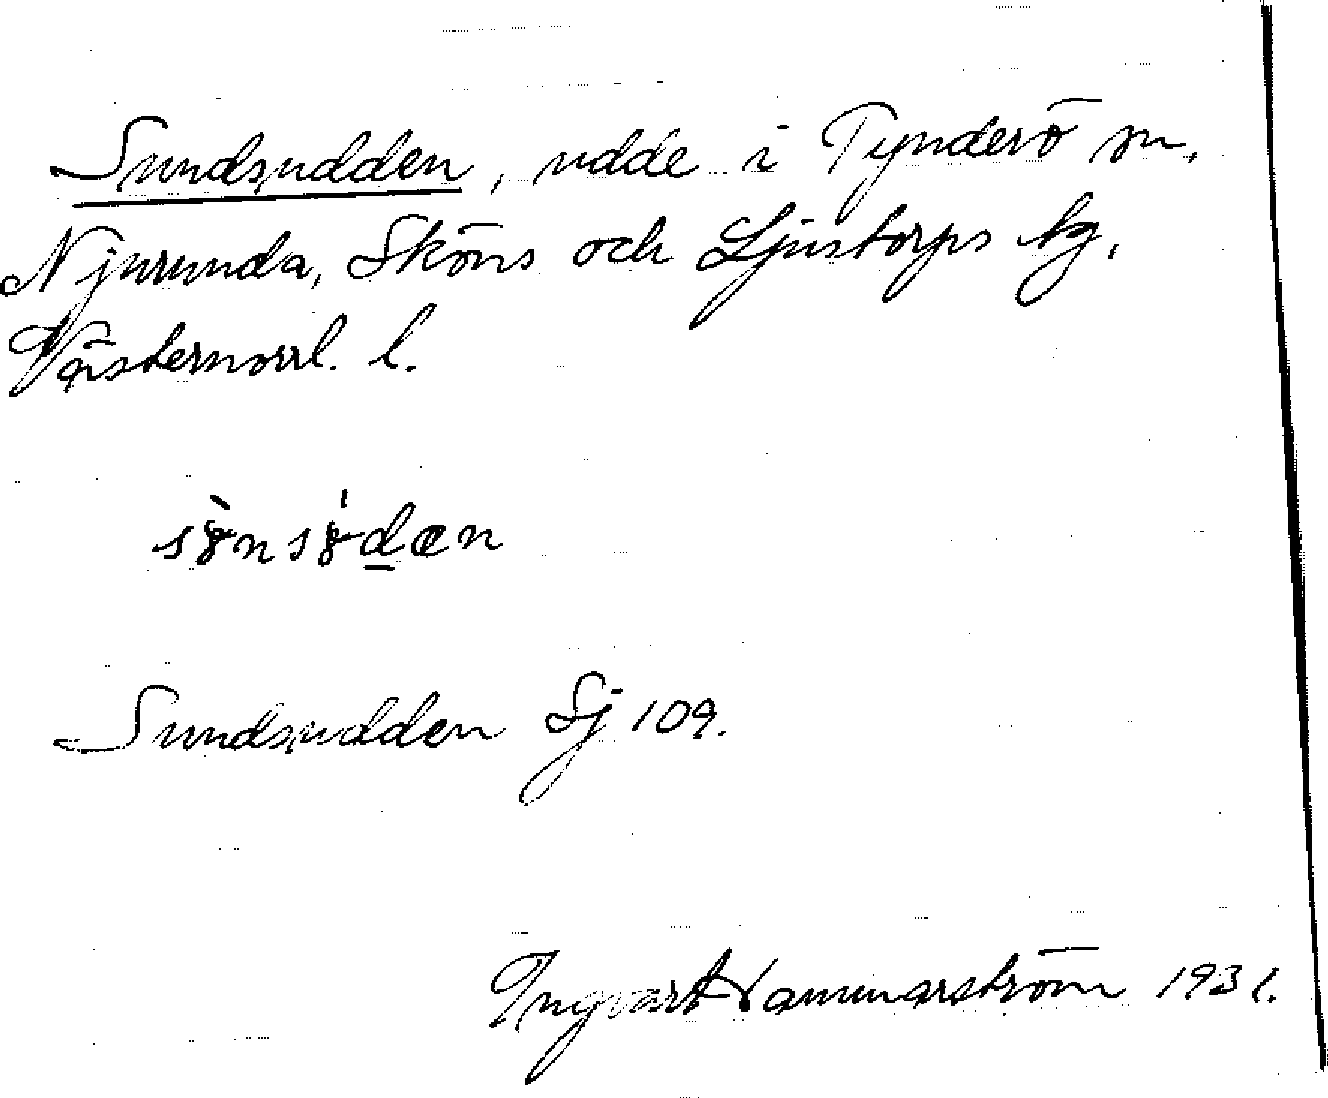 Sundsudden, udde i Tynderö sn,
Njurunda, Sköns och Ljustorps tg,
Västernorrl. l.
Sundsudden Sj 109.
Ingvart Hammarström 1931.